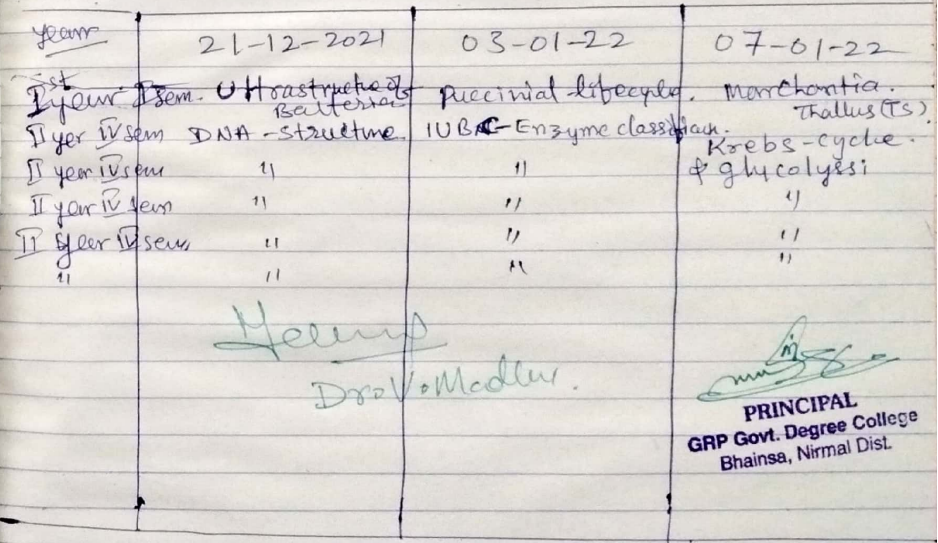 Year 21-12-2021 03-01-22 07-01-22
Ist year I sem. Ultrastructre of Bacteria Puccinial lifecycle. Marchantia. Thallus (TS).
II yer IV sem DNA - Structure IUBC - Enzyme classification. Krebs - cycle.
II year IV sem " " & glycolyssi
II year IV sem " " "
II year IV sem " " "
" " " "
Dr. V. Madhu.
PRINCIPAL
GRP Govt. Degree College
Bhainsa, Nirmal Dist.